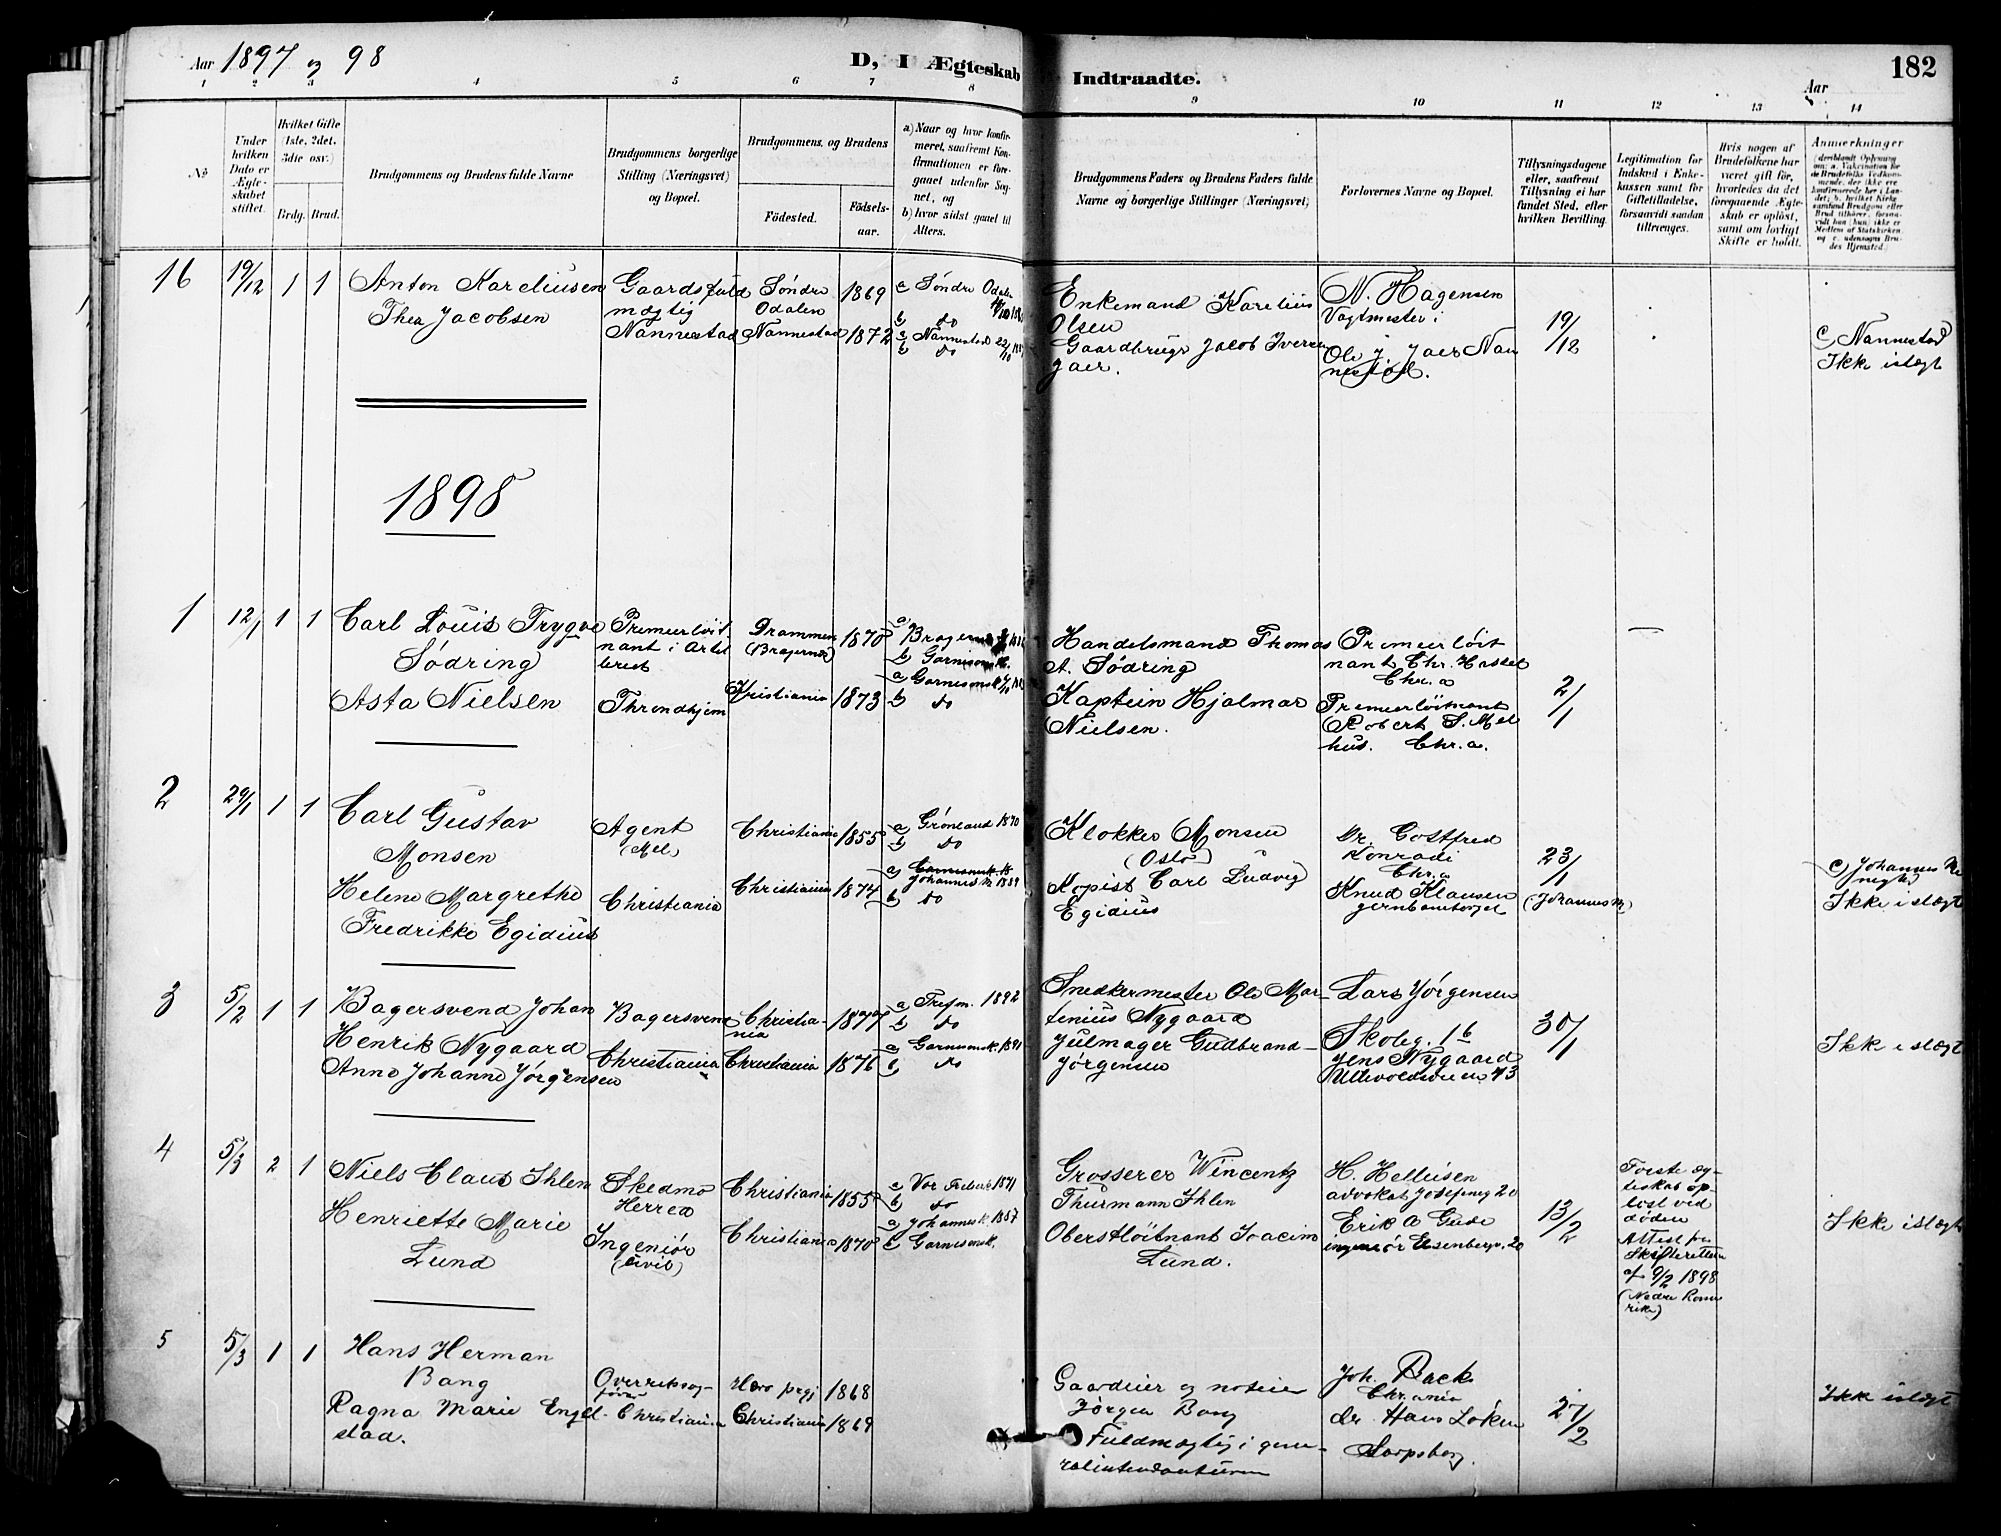 Aar 1897 og 98
D, I Ægteskab Indtraadte.
Aar
182
1 2 3 4 5 6 7 8 9 10 11 12 13 14
No
Under hvilken Dato er Ægteskabet stiftet.
Hvilket Gifte (1ste, 2det, 3die osv.)
Brdg. Brud.
Brudgommens og Brudens fulde Navne
Brudgommens borgerlige Stilling (Næringsvei) og Bopæl.
Brudgommens og Brudens
Fødested.
Fødselsaar.
a) Naar og hvor konfirmeret, saafremt Konfirmationen er foregaaet udenfor Sognet, og
b) hvor sidst gaaet til Alters.
Brudgommens Faders og Brudens Faders fulde Navne og borgerlige Stillinger (Næringsvei)
Forlovernes Navne og Bopæl.
Tillysningsdagene eller, saafremt Tillysning ei har fundet Sted, efter hvilken Bevilling.
Legitimation for Indskud i Enkekassen samt for Giftetilladelse, forsaavidt saadan tiltrænges.
Hvis nogen af Brudefolkene har været gift før, hvorledes da det foregaaende Ægteskab er opløst, samt om lovligt Skifte er holdt.
Anmerkninger
16 19/12 1 1
Anton Kareliusen
Thea Jacobsen
Gaardsfuld
mægtig
Nannestad
Søndre
Odalen
Nannestad
1869
1872
a Søndre Odalen
b do
a Nannestad 22/10
b do
Enkemand Karelius
Olsen
Gaardbruger Jacob Iversen
Jaer.
N. Hagensen
Vagtmester i
Ole J. Jaer Nan
nestad.
19/12
c) Nannestad
Ikke islægt
1898
1 12/1 1 1
Carl Louis Trygve
Sødring
Asta Nielsen
Premierløit
nant i Artil
leriet
Throndhjem
Drammen
(Bragernæs)
Kristiania
1870
1873
a Bragernæs
b Garnisonsk.
a Garnisonsk
b do
Handelsmand Thomas
A. Sødring
Kaptein Hjalmar
Nielsen.
Premierløit
nant Chr. Hassel
Chr.a
Premierløitnant
Robert S. Mel
hus. Chr.a.
2/1
2 29/1 1 1
Carl Gustav
Monsen
Helene Margrethe
Fredrikke Egidius
Agent
Christiania
Christiania
Christiania
1855
1874
a Grønland 1870
b do
a) Garnisonsk.
Johannesk 1889
b do
Klokker Monsen
(Oslo)
Kopist Carl Ludvig
Egidius
Dr. Gottfred
Konradi
Chr.a
Knud Klausen
Jernbanetorget
23/1
(Johannesk)
c) Johannes Me
nigh)
Ikke i slægt
3 5/2 1 1
Bagersvend Johan
Henrik Nygaard
Anne Johanne Jørgensen
Bagersvend
Christiania
Christia-
nia
Christiania
1877
1876
a Trefm. 1892
b do
a Garnisonsk. 1891
b do
Snedkermester Ole Mar-
tenius Nygaard
Julmager Gudbrand
Jørgensen
Lars Jørgensen
Skoleg. 16
Jens Nygaard
Ullevoldsveien 43
30/1
Ikke i slægt
4 5/3 2 1
Niels Claus Ihlen
Henriette Marie
Lund
Skedsmo
Herred
Ingeniør
(civil)
Christiania
Christiania
1855
1870
a Vor Frelsers 1871
b do
a Johannesk. 1887
b Garnisonsk.
Grosserer Wincentz
Thurmann Ihlen
Oberstløitnant Joacim
Lund.
H. Helliesen
advokat Josefineg 20
Erik A Gude
ingeniør Eilsenbergv. 20
13/2
Første æg-
teskab op-
løst ved
døden
Attest fra
Skifteretten
af 9/2 1898
(Nedre Rome
rike)
Ikke islægt
5 5/3 1 1
Hans Herman
Bang
Ragna Marie Engel-
stad.
Overretssag-
fører
Christiania
Christiania
1868
1869
Gaardeier og
Jørgen Bang
Fuldmægtig i gene-
ralintendanturen
Joh. Back
Chr.ania
Dr. Hans Løken
Sarpsborg.
27/2
Ikke islægt